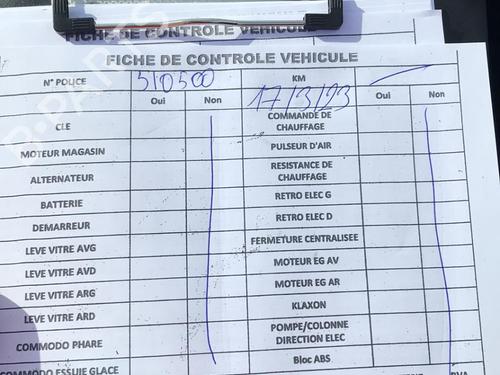 FICHE DE CONTROLE VEHICULE
FICHE DE CONTROLE VEHICULE
N° POLICE 510500 KM
Oui Non 17/3/23 Oui Non
CLE COMMANDE DE CHAUFFAGE
MOTEUR MAGASIN PULSEUR D'AIR
ALTERNATEUR RESISTANCE DE CHAUFFAGE
BATTERIE RETRO ELEC G
DEMARREUR RETRO ELEC D
LEVE VITRE AVG FERMETURE CENTRALISEE
LEVE VITRE AVD MOTEUR EG AV
LEVE VITRE ARG MOTEUR EG AR
LEVE VITRE ARD KLAXON
COMMODO PHARE POMPE/COLONNE DIRECTION ELEC
COMMODO ESSUIE GLACE Bloc ABS